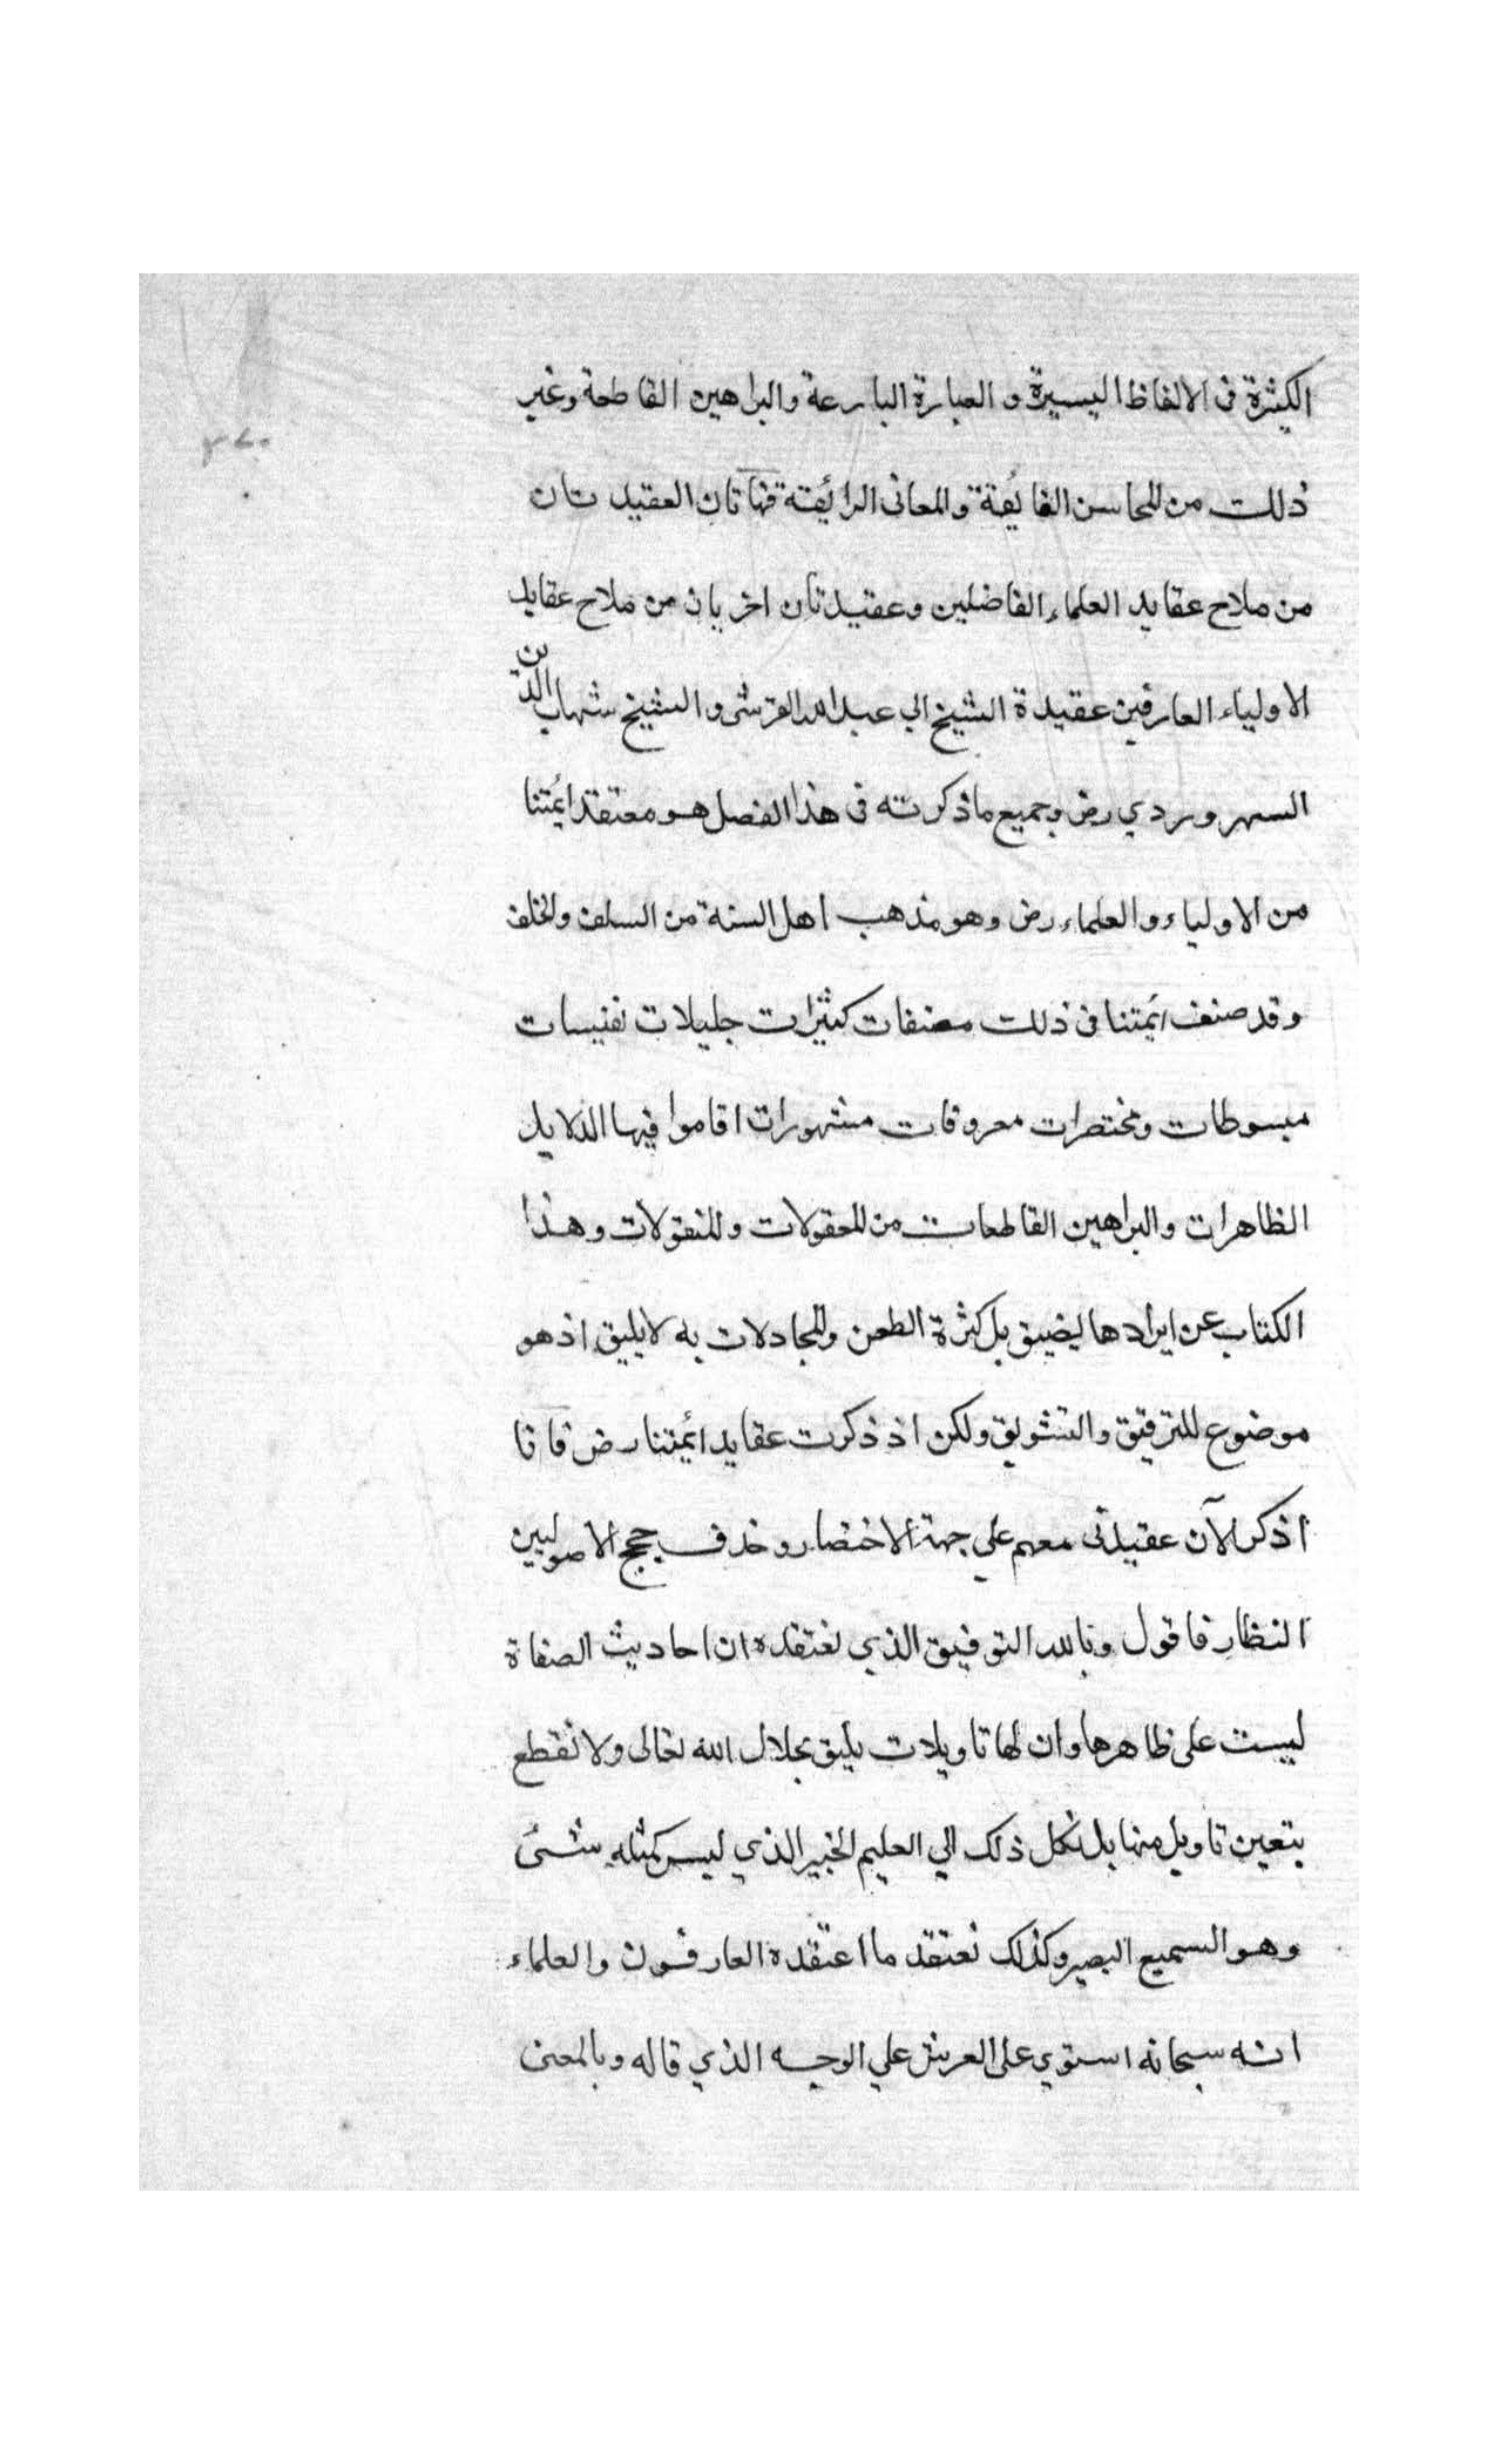 الكثيرة فى الالفاظ اليسيرة و العبارة البارعة والبراهين القاطعة وغير
ذلك من المحاسن الفايُقة والمعانى الرايُقة فهاتان العقيد تان
من ملاح عقايد العلماء الفاضلين وعقيدتان اخريان من ملاح عقايد
الاولياء العارفين عقيدة الشيخ ابي عبدالله القرشى و الشيخ شهاب الدين
السهروردي رض وجميع ماذكرته فى هذا الفصل هو معتقد ايُمتنا
من الاولياء و العلماء رض وهو مذهب اهل السنة من السلف والخلف
وقد صنف ايُمتنا فى ذلك مصنفات كثيرات جليلات نفيسات
مبسوطات ومختصرات معروفات مشهورات اقاموا فيها الدلايل
الظاهرات والبراهين القاطعات من المعقولات والمنقولات وهذا
الكتاب عن ايرادها يضيق بل كثرة الطعن والمجادلات به لايليق اذ هو
موضوع للترقيق والتشويق ولكن اذ ذكرت عقايد ائمتنا رض فانا
اذكر الآن عقيدتى معهم علي جهة الاختصار وحذف حجج الاصوليين
النظار فاقول وبالله التوفيق الذي نعتقده ان احاديث الصفاة
ليست على ظاهرها وان لها تاويلات يليق بجلال الله تعالى ولا نقطع
بتعين تاويل منها بل نكل ذلك الي العليم الخبير الذي ليس كمثله شئ
وهو السميع البصير وكذلك نعتقد ما اعتقده العارفون والعلماء
انه سبحانه استوي على العرش علي الوجه الذي قاله وبالمعنى